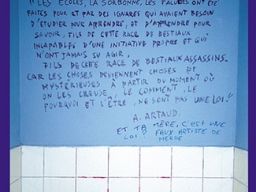 "LES ECOLES, LA SORBONNE, LES FACULTÉS ONT ÉTÉ
FAITES POUR ET PAR DES IGNARES QUI AVAIENT BESOIN
D'ETUDIER POUR APPRENDRE, ET D'APPRENDRE POUR
SAVOIR, FILS DE CETTE RACE DE BESTIAUX
INCAPABLES D'UNE INITIATIVE PROPRE ET QUI
N'ONT JAMAIS SU AGIR,
FILS DE CETTE RACE DE BESTIAUX ASSASSINS.
CAR LES CHOSES DEVIENNENT CHOSES DE
MYSTÉRIEUSES À PARTIR DU MOMENT OÙ
ON LES CREUSE, LE COMMENT, LE
POURQUOI ET L'ÊTRE, NE SONT PAS UNE LOI."
A. ARTAUD.
ET TA MÈRE, C'EST UNE
LOI? FAUX ARTISTE DE
MERDE